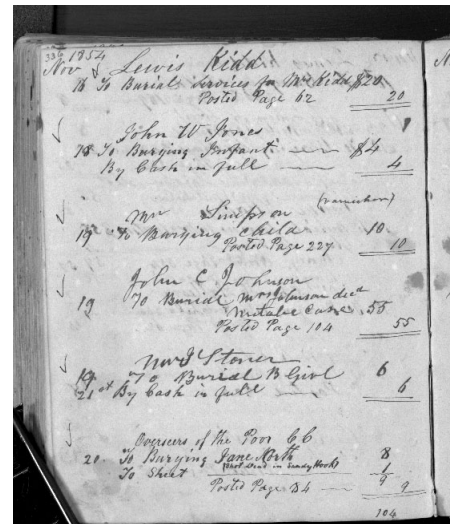 334 1854
Nov Lewis Kidd
18 To Burial Services for Mr Kidd $20
Posted Page 62 20
John W Jones
18 To Burying Infant $4
By Cash in full 4
Mr Simpson
19 To Burying child 10
Posted Page 227 10
John C Johnson
19 To Burial Mrs Johnson decd
Metalic Case 55
Posted Page 104 55
Mrs J Stoner
19 To Burial B Girl 6
21st By Cash in full 6
Overseers of the Poor C C
20 To Burying Jane North 8
(Shot Dead in Sandy Hook)
To Sheet 1
Posted Page 34 9 9
104